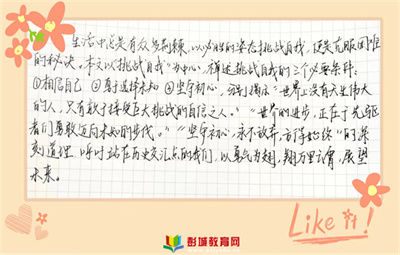 生活中总是有众多荆棘，以必胜的姿态挑战自我，便是克服困难
的秘决。本文以“挑战自我”为中心，详述挑战自我的三个必要条件：
①相信自己 ②勇于选择未知 ③坚守初心，分别揭示“世界上没有天生伟大
的人，只有敢于接受巨大挑战的自信之人。”“世界的进步，正在于先驱
者们勇敢迈向未知的步伐。”“坚守初心，永不放弃，方得始终”的深
刻道理，呼吁站在历史交汇点的我们，以勇气为翅，翱万里云霄，展望
未来。
Like it!
彭城教育网